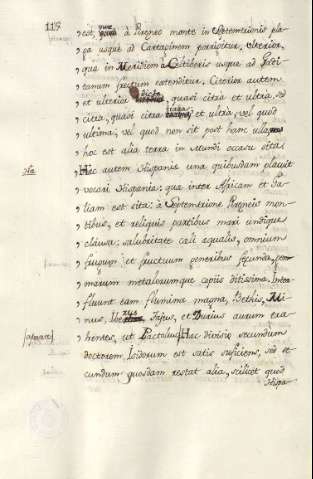 119
est, quæ à Pirneo monte in Septemtrionis pla-
ga usque ad Cartaginem porrigitur, Ulterior,
quæ in Meridiem à Celtiberis usque ad Gadi-
tanum fretum extenditur. Citerior autem
et ulterior dicta, quasi citra et ultra, sed
citra, quasi citra et ultra, vel quod
ultima, vel quod non sit post hanc ulla
hoc est alia terra in Mundi occasu sita
Hac autem Hispania una quibusdam placuit
vocari Hispania: quæ inter Africam et Ga-
liam est sita: à Septemtrione Pirneis mon-
tibus, et reliquis partibus mari undique
clausa: salubritate celi æqualis, omnium
frugum et fructuum generibus fecunda,
marum metalorumque copiis ditissima. Inter
fluunt eam flumina magna, Bethis, Mi-
nus, Tajus, et Durius aurum tra-
hentes, ut Pactolus. Hac divisio secundum
doctorem Isidorum est satis suficiens, sed se-
cundum quosdam restat alia, scilicet quod
Hispa-